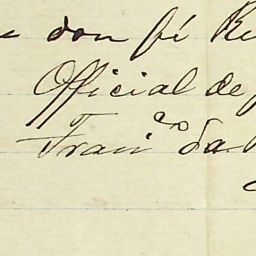 e dou fé Re
Official de J
Fran.co da